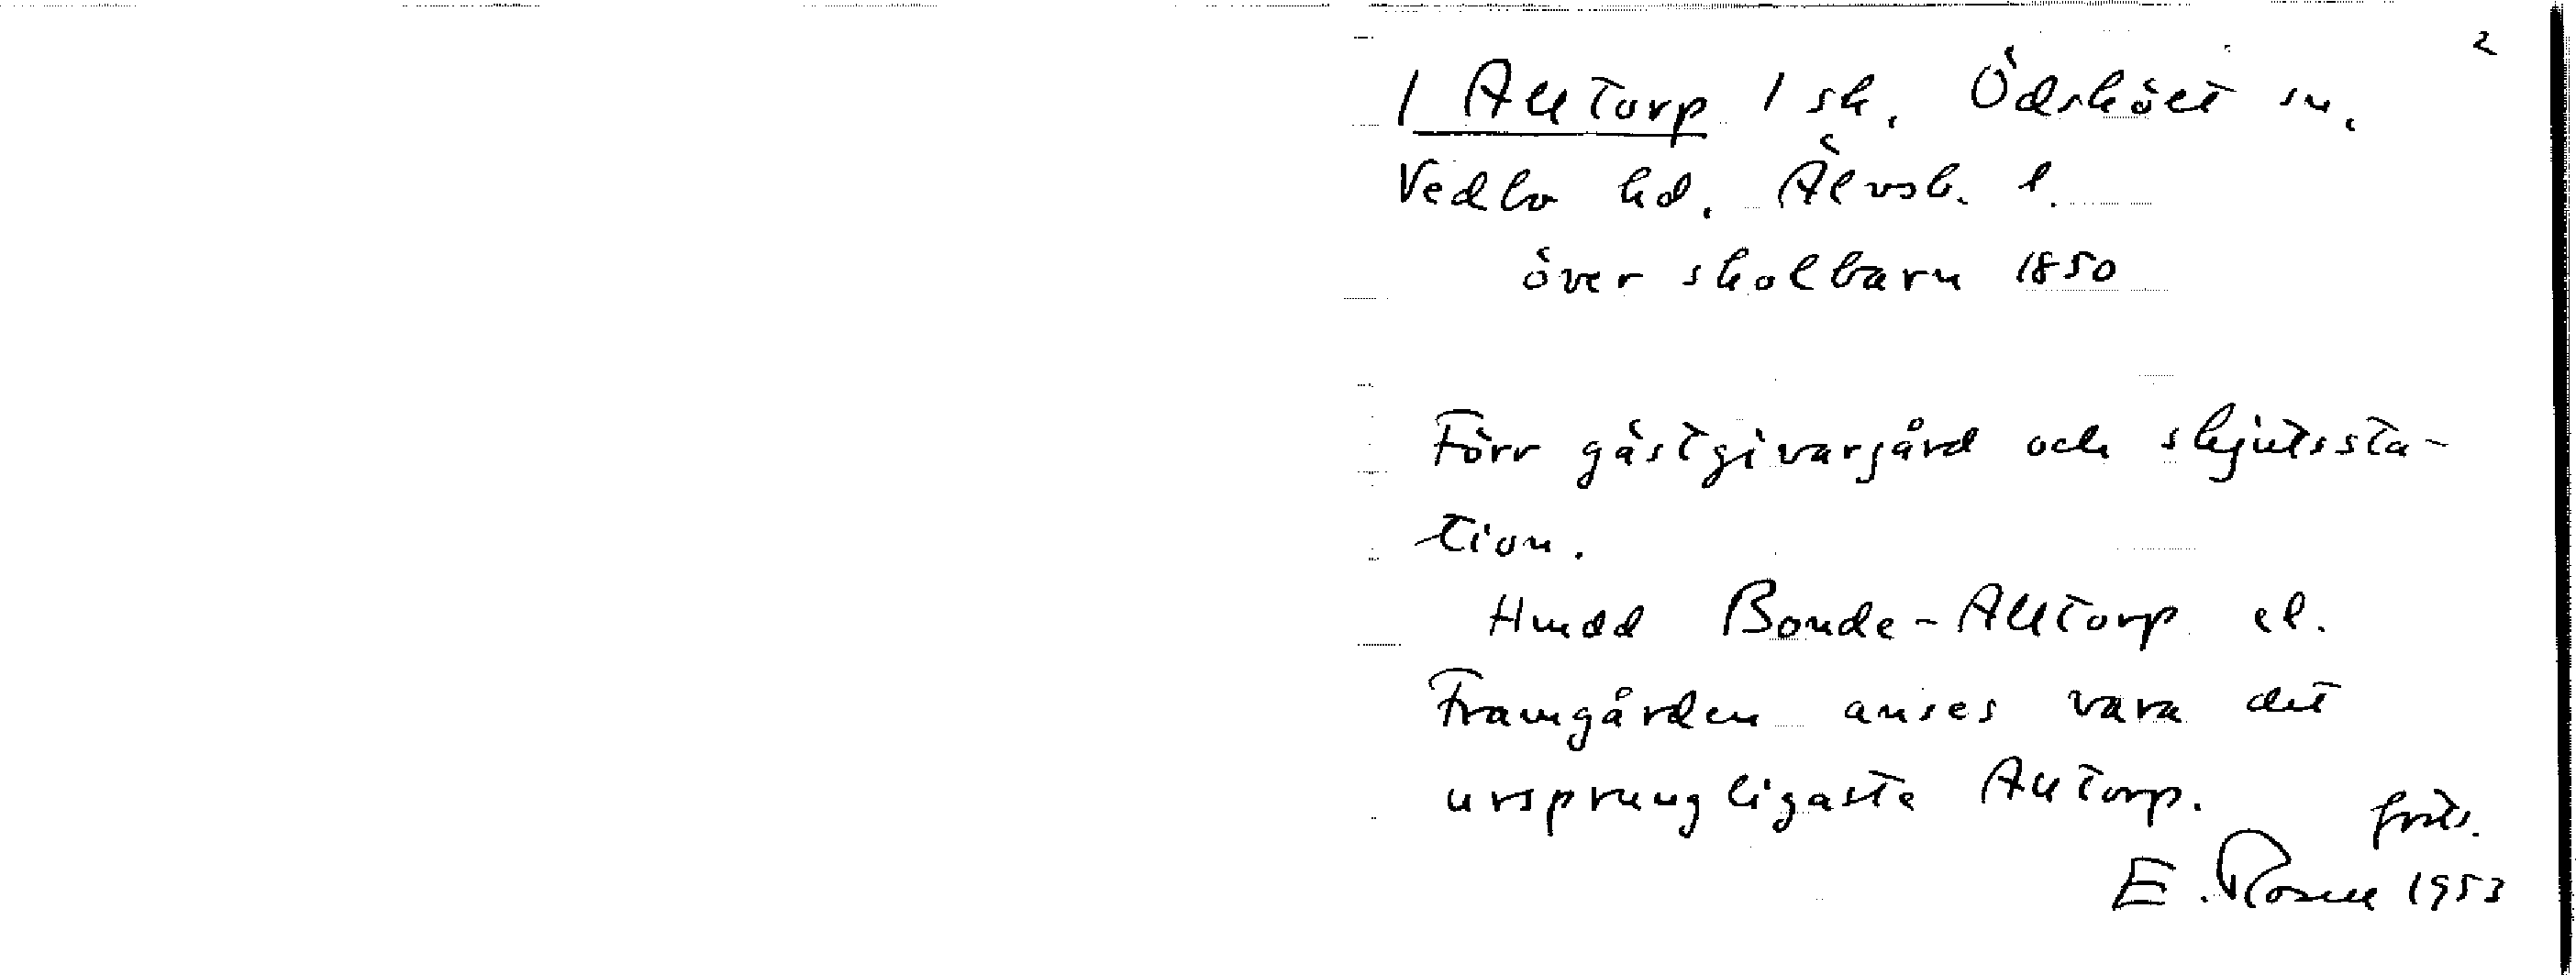 2
1 Alltorp 1 sk. Ödskölt sn.
Vedbo hd. Älvsb. l.
över skolbarn 1850
Förr gästgivargård och skjutssta-
tion.
Hmdd Bonde-Alltorp el.
Framgården anses vara det
ursprungligaste Alltorp.
forts.
E. Rosell 1953